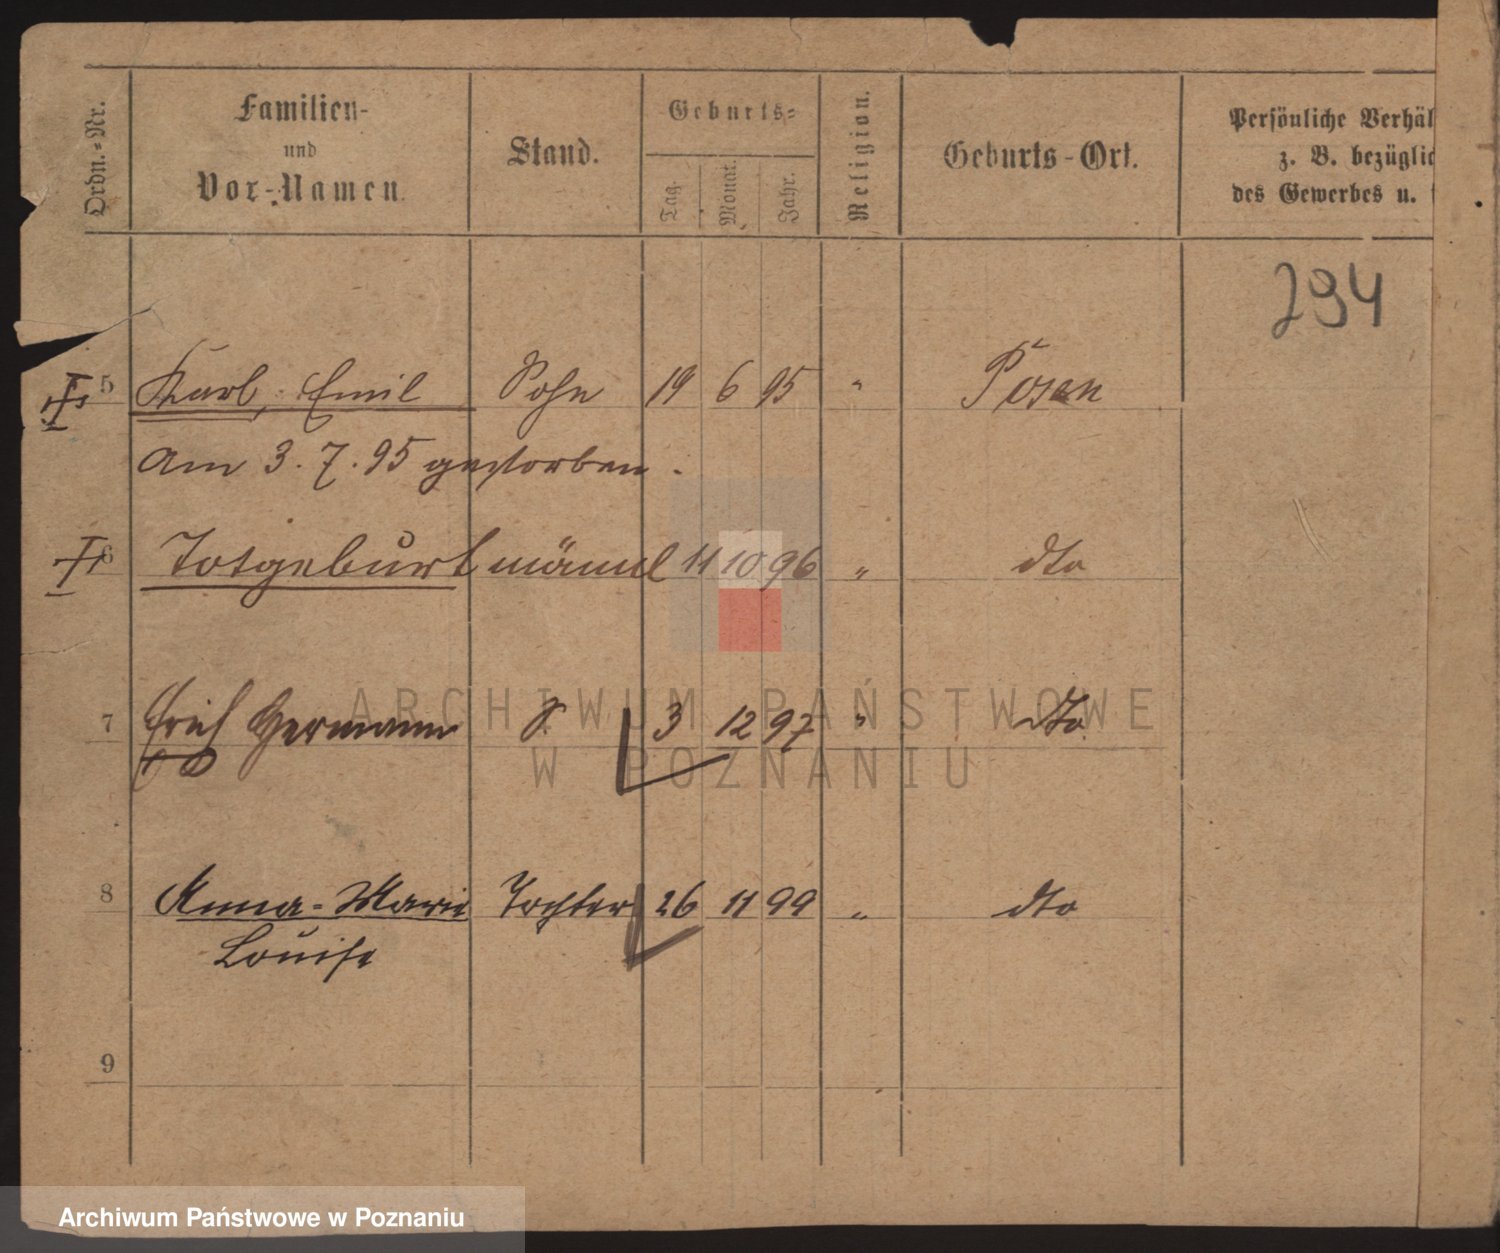 Ordn.-Nr.
Familien-
und
Vor-Namen.
Stand.
Geburts-
Tag.
Monat.
Jahr.
Religion.
Geburts-Ort.
Persönliche Verhäl
z. B. bezüglic
des Gewerbes u.
294
5 Karl, Emil Sohn 19 6 95 " Posen
Am 3. 7. 95 gestorben.
6 Totgeburt männl 11 10 96 " dto
7 Erich Hermann S. 3 12 97 " dto
8 Anna-Marie Tochter 26 11 99 " dto
Louise
9
ARCHIWUM PAŃSTWOWE
W POZNANIU
Archiwum Państwowe w Poznaniu